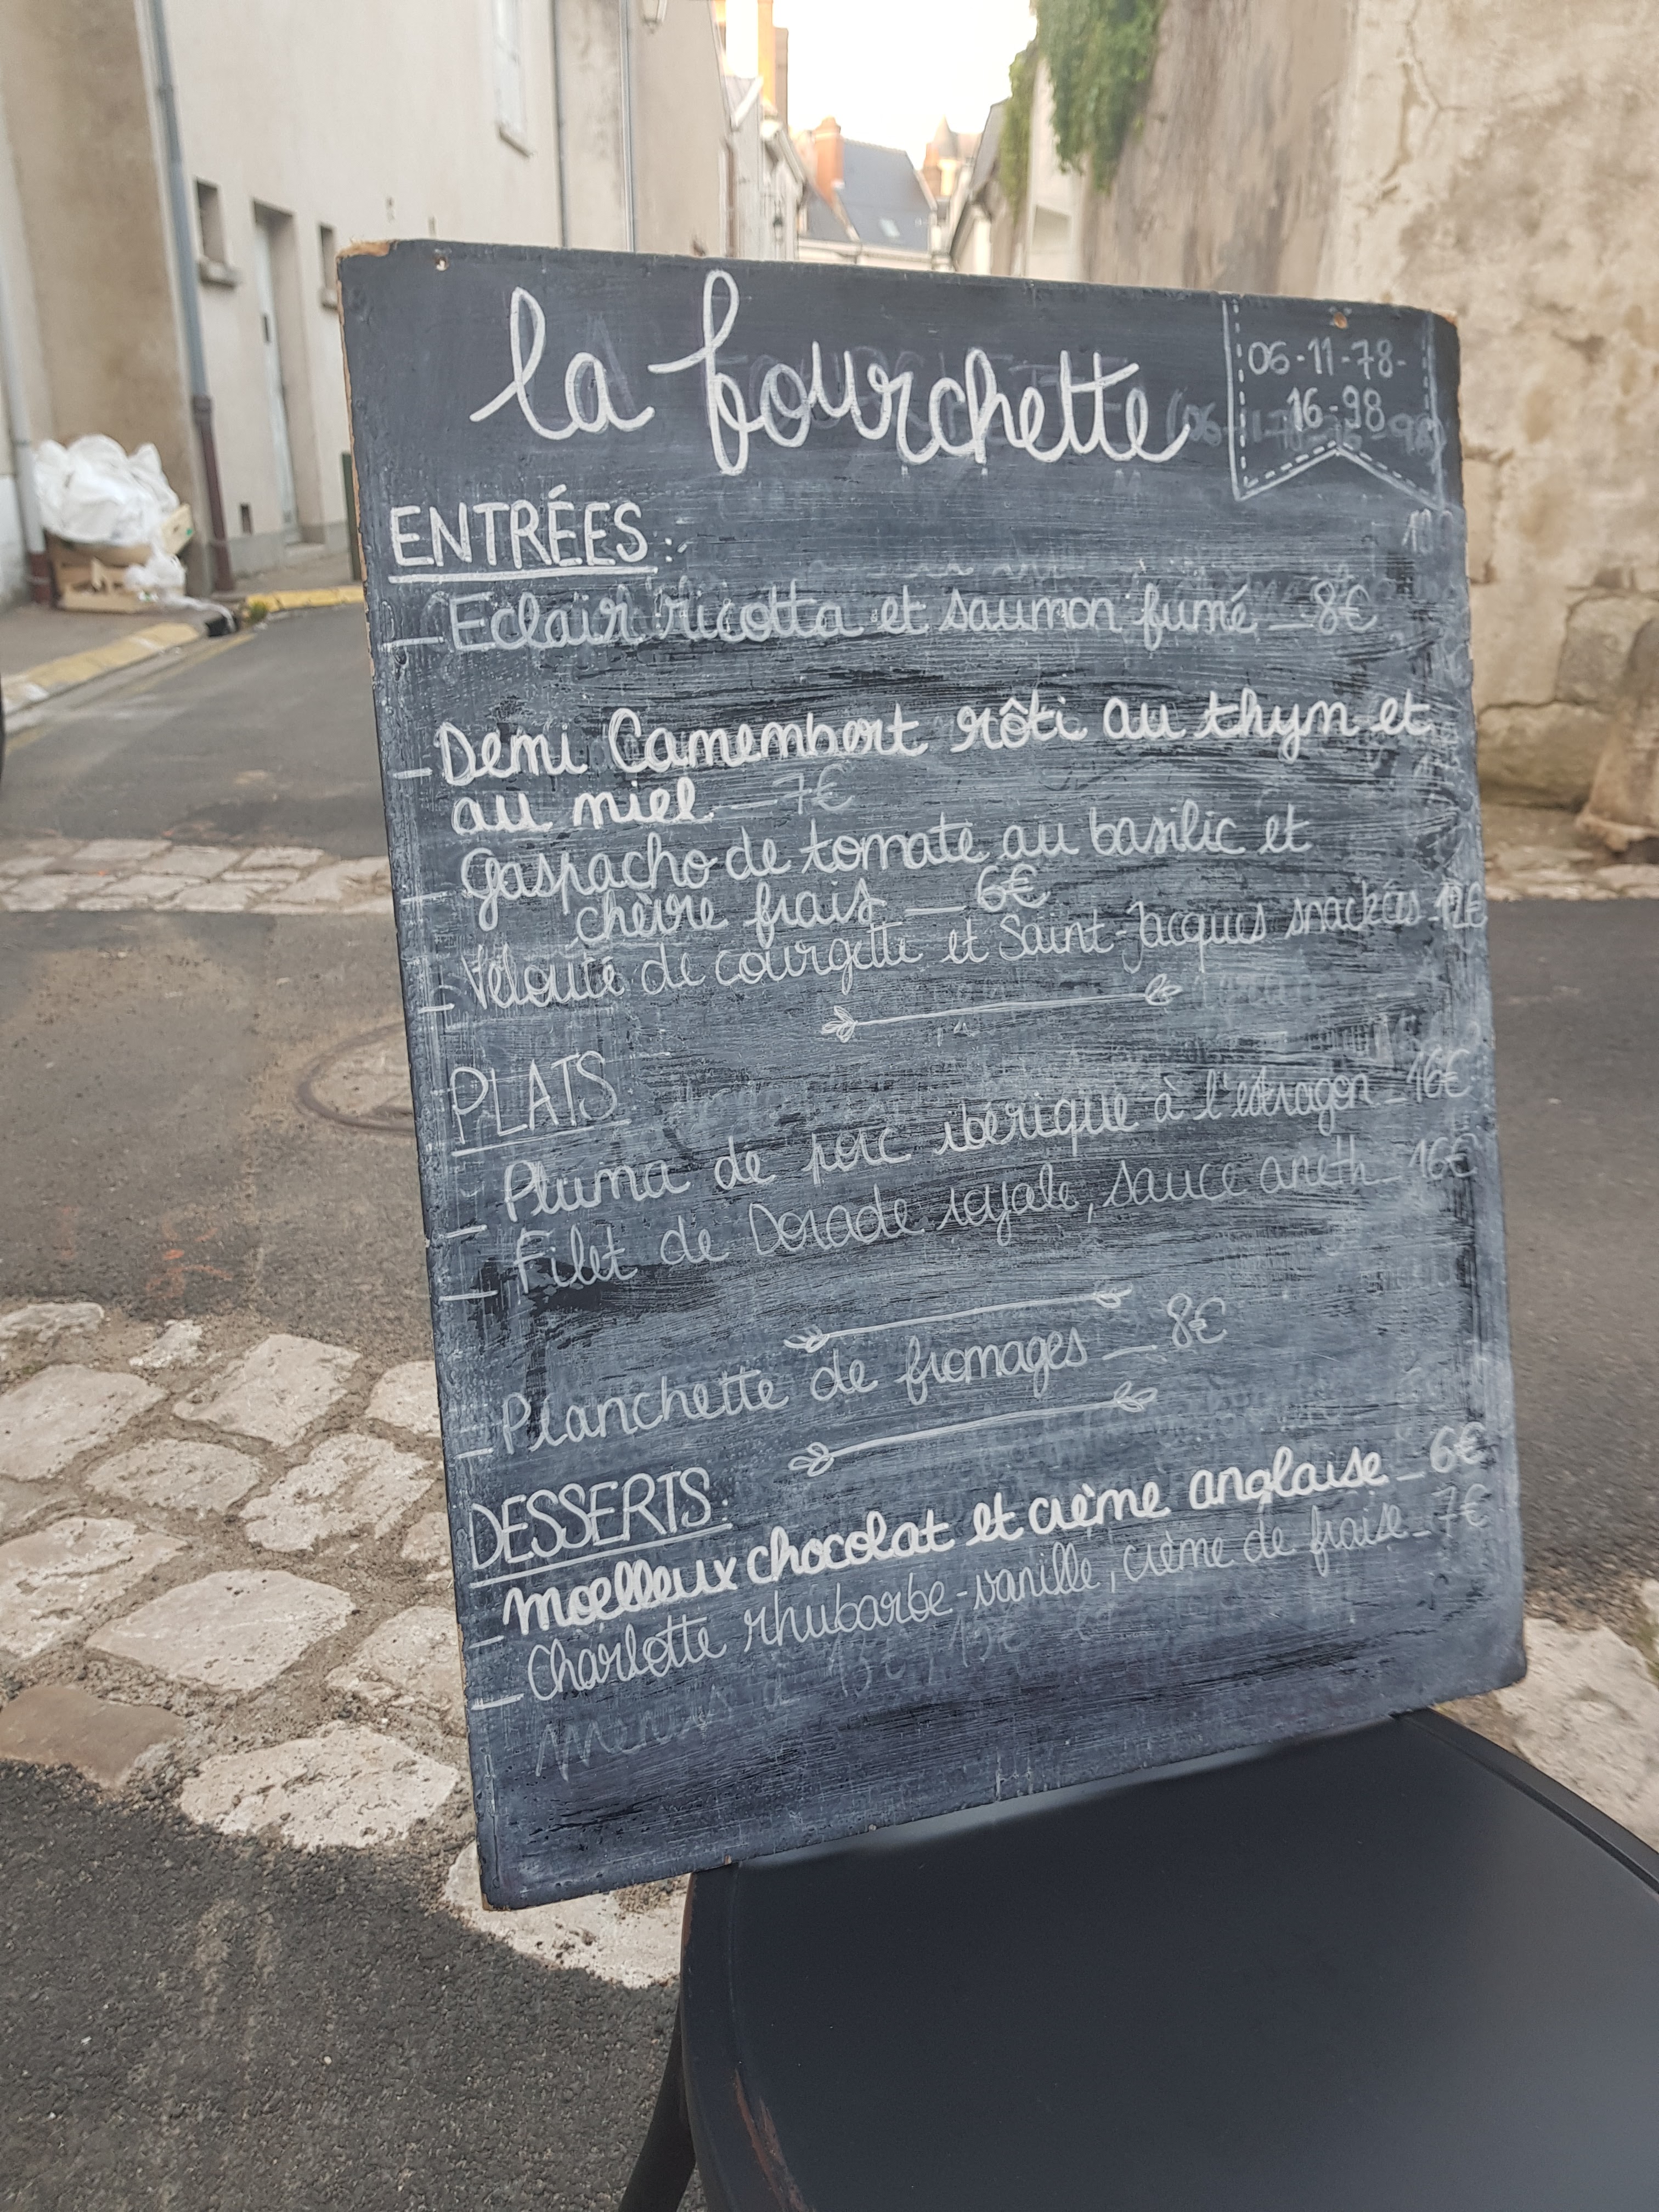 la fourchette
06-11-78-
16-98
ENTRÉES:
_ Eclair ricotta et saumon fumé _ 8€
_ Demi Camembert rôti au thym et
au miel _ 7€
_ Gaspacho de tomate au basilic et
chèvre frais _ 6€
_ Velouté de courgette et Saint-Jacques snackées _ 12€
PLATS
_ Pluma de porc ibérique à l'estragon _ 16€
_ Filet de Dorade royale, sauce aneth _ 16€
_ Planchette de fromages _ 8€
DESSERTS:
_ moelleux chocolat et crème anglaise _ 6€
_ Charlotte rhubarbe-vanille, crème de fraise _ 7€